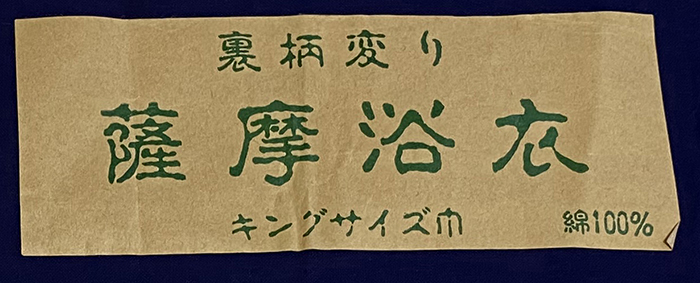 裏柄変り
薩摩浴衣
キングサイズ巾
綿100%